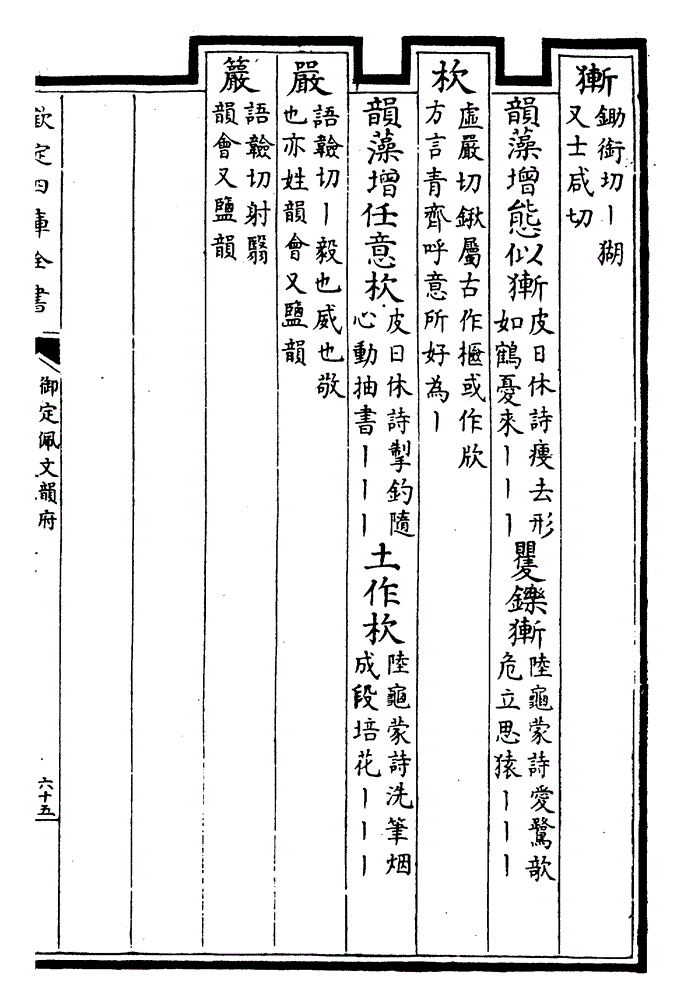 獑鋤銜切丨猢
又士咸切
韻藻增態似獑皮日休詩瘦去形
如鶴憂來丨丨丨矍鑠獑陸龜蒙詩愛鷖歆
危立思猿丨丨丨
杴虛嚴切鍬屬古作櫃或作㸝
方言青齊呼意所好為丨
韻藻增任意杴皮日休詩掣釣隨
心動抽書丨丨丨土作杴陸龜蒙詩洗筆烟
成段培花丨丨丨
嚴語驗切丨毅也威也敬
也亦姓韻會又鹽韻
籖語驗切射翳
韻會又鹽韻
欽定四庫全書
御定佩文韻府
六十五